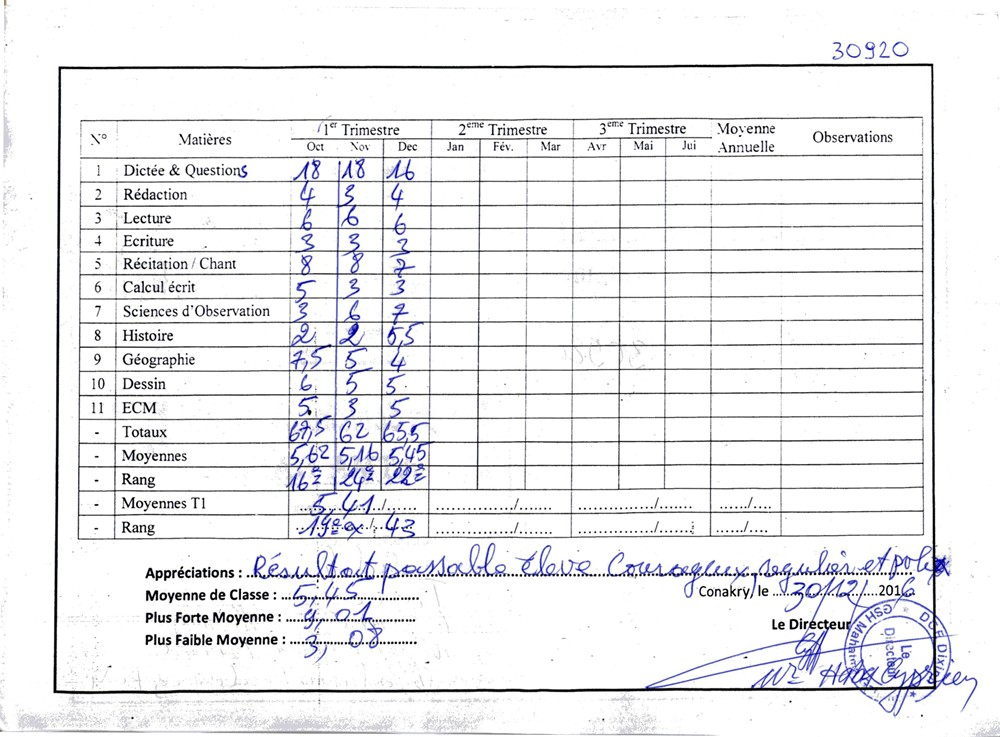 30920
N° Matières 1er Trimestre 2eme Trimestre 3eme Trimestre Moyenne Annuelle Observations
Oct Nov Dec Jan Fév. Mar Avr Mai Jui
1 Dictée & Questions 18 18 16
2 Rédaction 4 3 4
3 Lecture 6 6 6
4 Ecriture 3 3 3
5 Récitation / Chant 8 8 7
6 Calcul écrit 5 3 3
7 Sciences d'Observation 3 6 7
8 Histoire 2 2 5,5
9 Géographie 7,5 5 4
10 Dessin 6 5 5
11 ECM 5 3 5
- Totaux 67,5 62 65,5
- Moyennes 5,62 5,16 5,45
- Rang 16e 24e 22e
- Moyennes T1 5,41 ..../.... ..../.... ..../....
- Rang 19e ex / 43 ..../.... ..../.... ..../....
Appréciations : Résultat passable élève Courageux, regulier et poli
Moyenne de Classe : 5,45 Conakry, le 30/12/2016
Plus Forte Moyenne : 9,01 Le Directeur
Plus Faible Moyenne : 3,08
DCE Dixi
GSH Mahat
Le Directeur